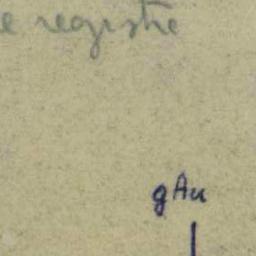 e registre
gAu